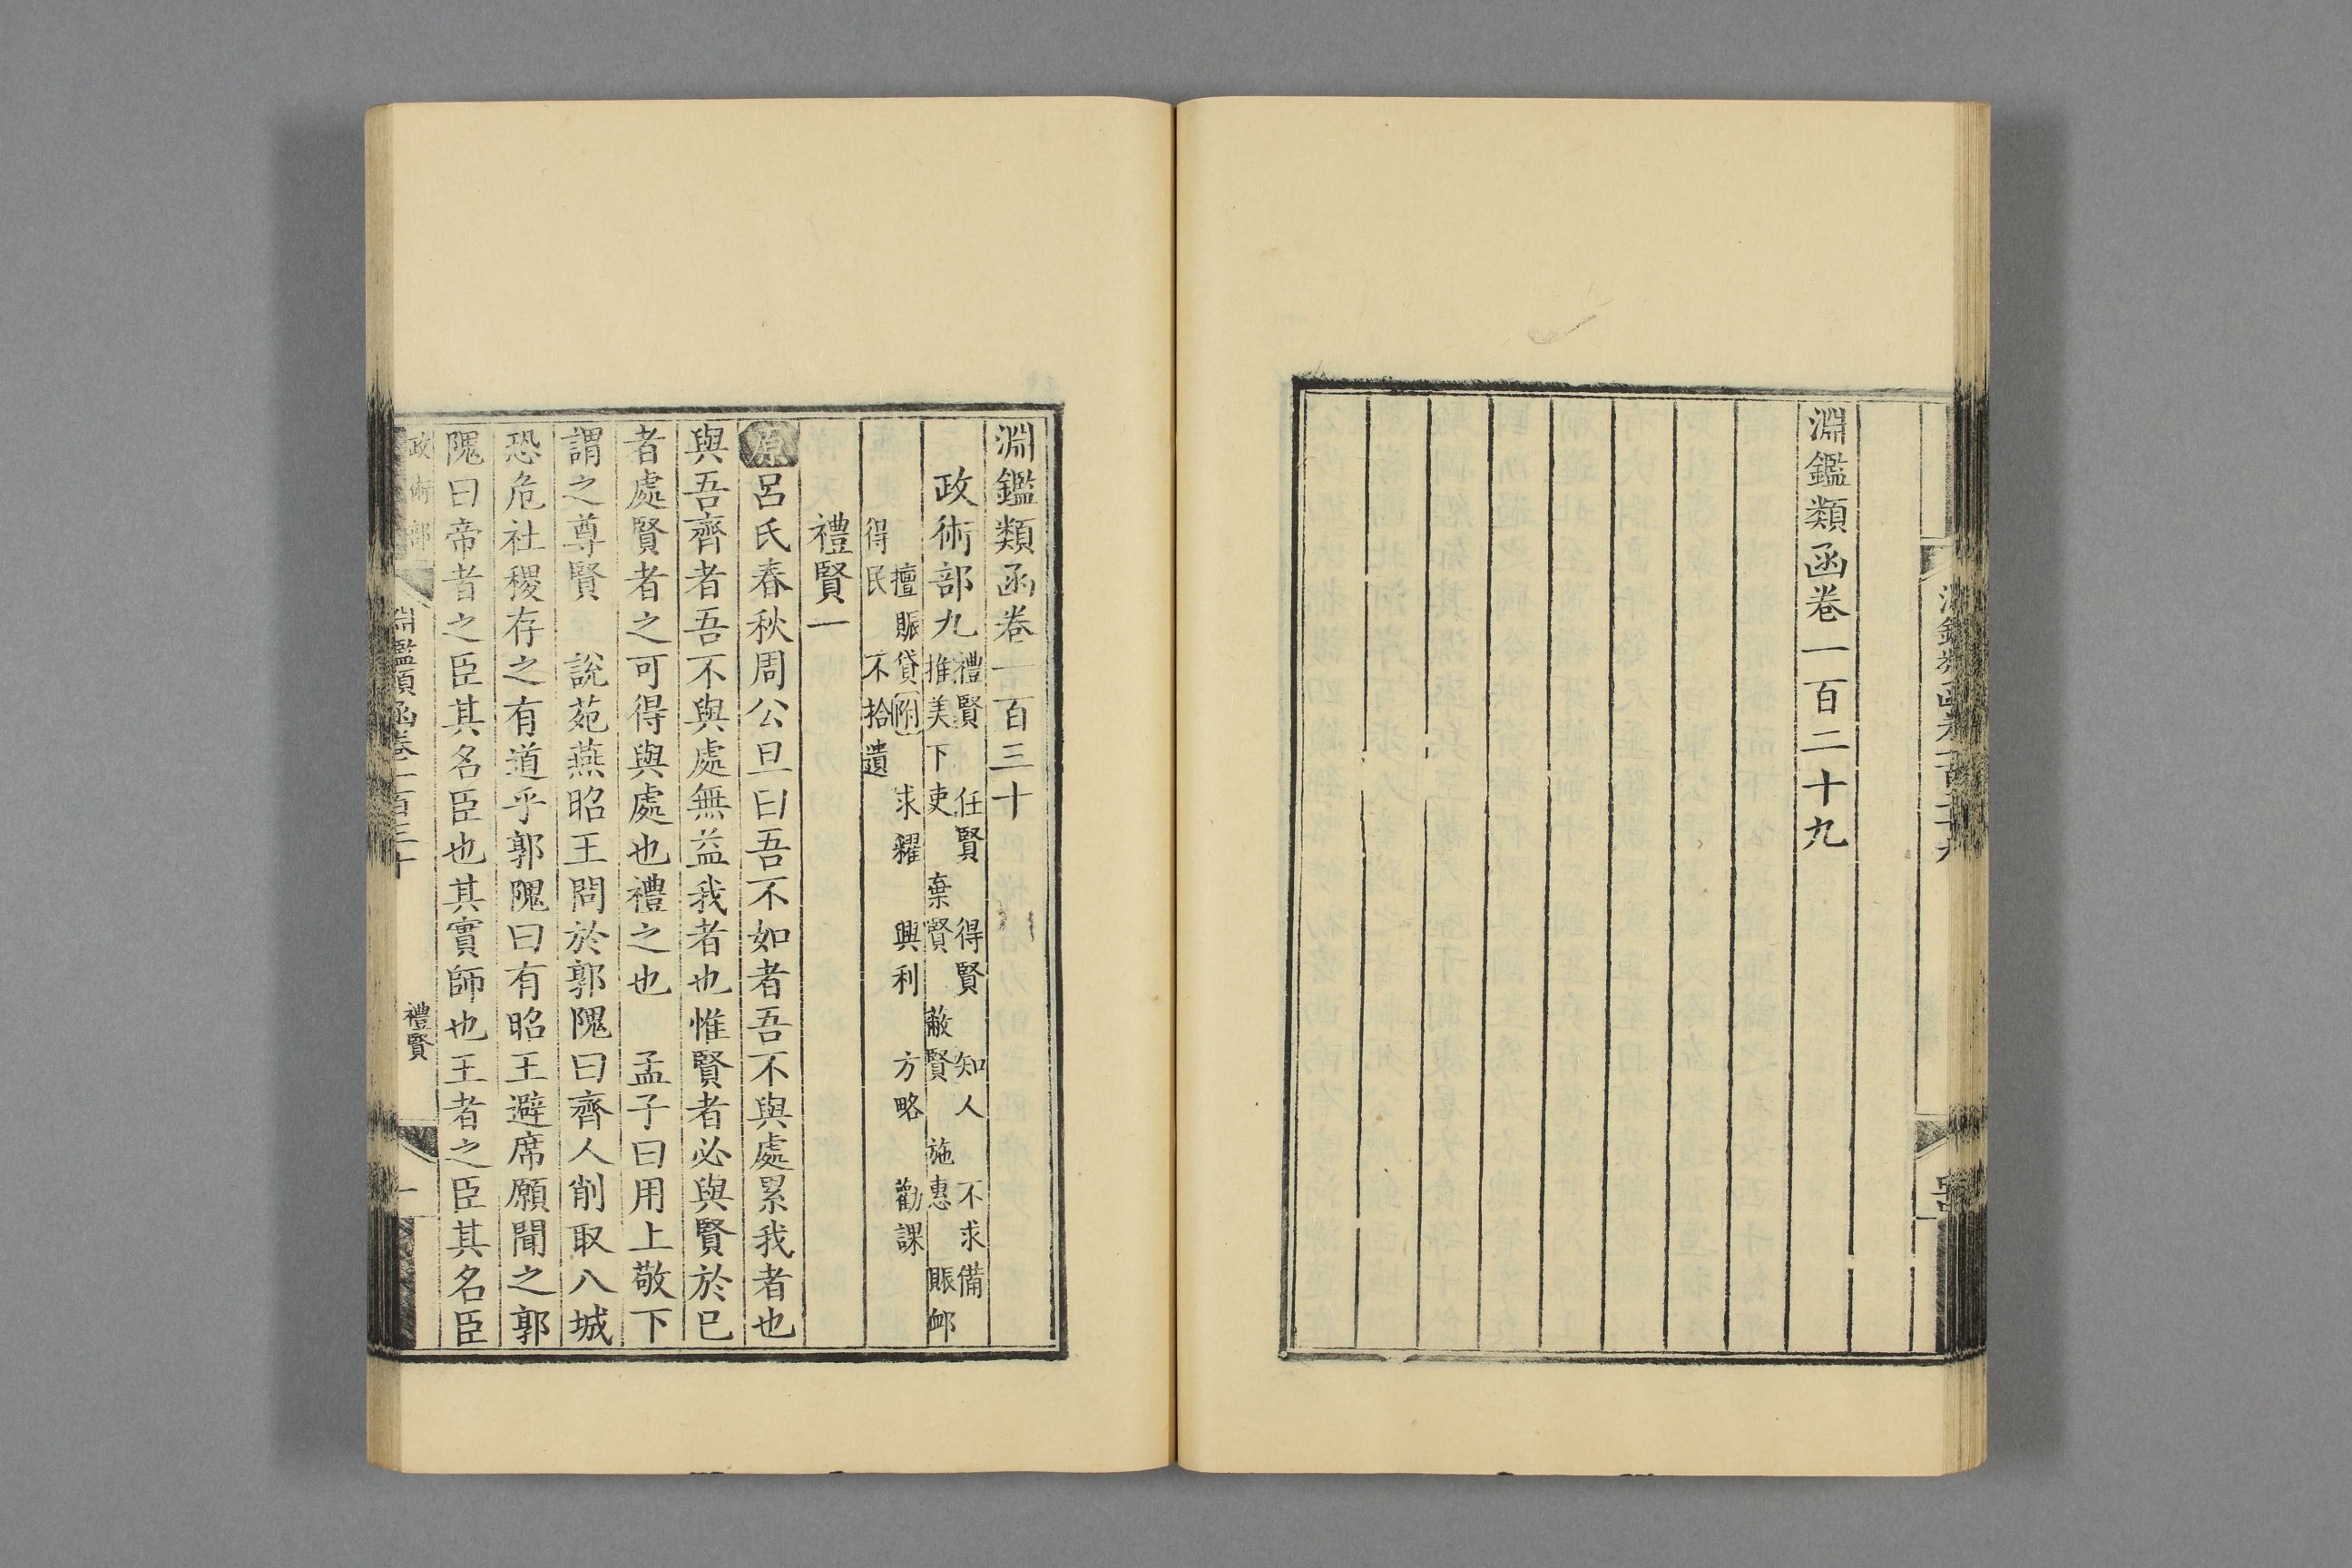 淵鑑類函卷一百二十九
淵鑑類函卷一百三十
政術部九 禮賢 任賢 得賢 知人 不求備
推美下吏 棄賢 蔽賢 施惠 賑䘏
擅賑貸(附) 求糴 興利 方略 勸課
得民 不拾遺
禮賢一
原呂氏春秋周公旦曰吾不如者吾不與處累我者也
與吾齊者吾不與處無益我者也惟賢者必與賢於已
者處賢者之可得與處也禮之也 孟子曰用上敬下
謂之尊賢 說苑燕昭王問於郭隗曰齊人削取八城
恐危社稷存之有道乎郭隗曰有昭王避席願聞之郭
隗曰帝者之臣其名臣也其實師也王者之臣其名臣
政術部
淵鑑類函卷一百三十
禮賢
一